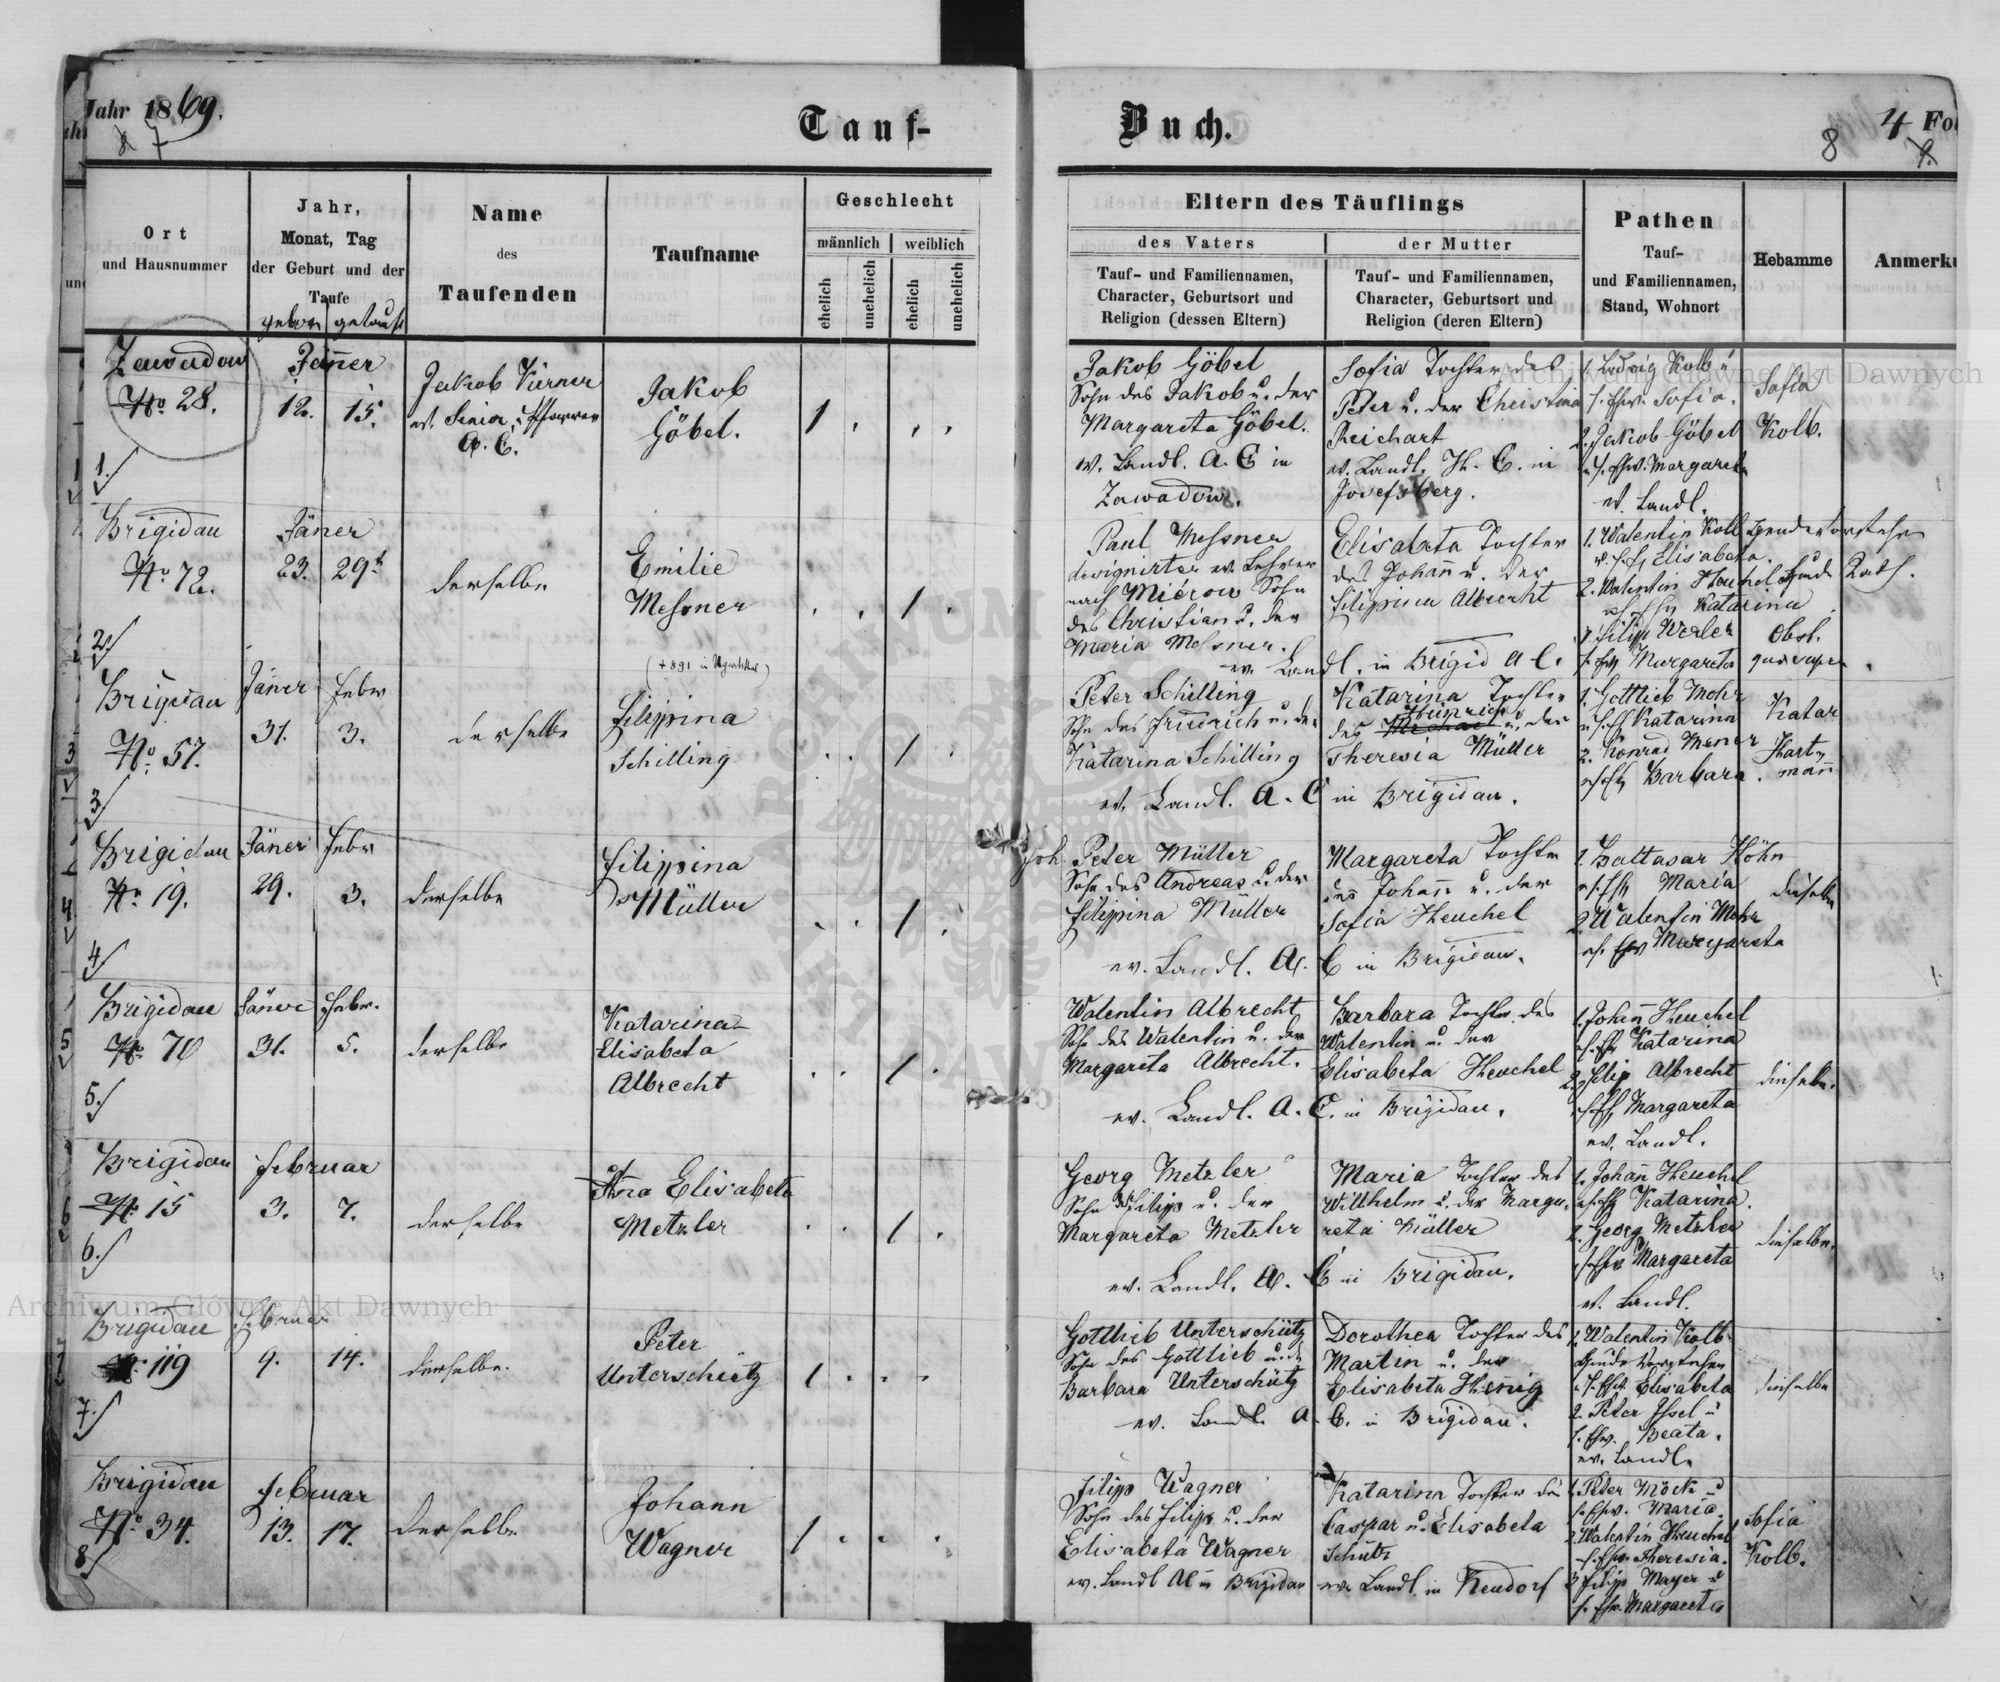 Jahr 1869.
Tauf-
Buch.
8
4 Fol
Ort
und Hausnummer
Jahr,
Monat, Tag
der Geburt und der
Taufe
geboren getauft
Name
des
Taufenden
Taufname
Geschlecht
männlich
weiblich
ehelich
unehelich
ehelich
unehelich
Eltern des Täuflings
des Vaters
der Mutter
Tauf- und Familiennamen,
Character, Geburtsort und
Religion (dessen Eltern)
Tauf- und Familiennamen,
Character, Geburtsort und
Religion (deren Eltern)
Pathen
Tauf-
und Familiennamen,
Stand, Wohnort
Hebamme
Anmerku
Zawadow
No 28.
1./
Jänner
12. 15.
Jakob
ev. Senior u. Pfarrer
A. C.
Jakob
Göbel.
1
Jakob Göbel
Sohn des Jakob u. der
Margareta Göbel.
ev. Landl. A. C in
Zawadow.
Sofia Tochter des
Peter u. der Christina
Reichart
ev. Landl. H. C. in
Josefsberg.
1. Ludwig Kolb u
s. Ehw. Sofia.
2. Jakob Göbel
u s. Ehw. Margareta
ev. Landl.
Sofia
Kolb.
Brigidau
No 72.
2./
Jäner
23. 29t
derselbe
Emilie
Messner
Paul Messner
designirter ev. Lehrer
nach Sohn
des Christian u. der
Maria Messner.
ev. Landl. in Brigid A C.
Elisabeta Tochter
des Johann u. der
Filippina Albrecht
1. Valentin Kolb
Elisabeta.
2. Valentin Heuchel
Katarina
3. Filipp
Margareta
Obst.
Brigidau
No. 57.
3./
Jäner Febr
31. 3.
derselbe
Filippina
Schilling
Peter Schilling
Sohn des Friedrich u. der
Katarina Schilling
ev. Landl. A. C in Brigidau.
Katarina Tochter
des Heinrich u. der
Theresia Müller
1. Gottlieb Mohr
Katarina
2. Konrad
Barbara.
Katar
Hart-
mann
Brigidau
No 19.
4/
Jäner Febr
29. 3.
derselbe
Filippina
Müller
Joh. Peter Müller
Sohn des Andreas u. der
Filippina Müller
ev. Landl. A. C in Brigidau.
Margareta Tochter
des Johann u. der
Sofia Heuchel
1. Baltasar Höhn
Maria
2. Valentin Mohr
Margareta
dieselbe
Brigidau
No. 70
5./
Jäner Febr.
31. 5.
derselbe
Katarina
Elisabeta
Albrecht
Valentin Albrecht
Sohn des Valentin u. der
Margareta Albrecht.
ev. Landl. A. C. in Brigidau.
Barbara Tochter des
Valentin u. der
Elisabeta Heuchel
1. Johann Heuchel
Katarina
2. Filip Albrecht
Margareta
ev. Landl.
dieselbe.
Brigidau
No 15
6./
Februar
3. 7.
derselbe
Ana Elisabeta
Metzler
Georg Metzler
Sohn des Filipp u. der
Margareta Metzler
ev. Landl. A. C in Brigidau.
Maria Tochter des
Willhelm u. der Marga-
reta Müller
1. Johann Heuchel
Katarina.
2. Georg Metzler
Margareta
ev. Landl.
dieselbe.
Brigidau
119
7./
Februar
9. 14.
derselbe.
Peter
Unterschütz
1
Gottlieb Unterschütz
Sohn des Gottlieb u. der
Barbara Unterschütz
ev. Landl. A. C. in Brigidau.
Dorothea Tochter des
Martin u. der
Elisabeta Henig
1. Valentin Kolb
Elisabeta
2. Peter Issel u
s. Ehw. Beata.
ev. Landl.
dieselbe
Brigidau
No. 34.
8/
Februar
13. 17.
derselbe
Johann
Wagner
1
Filipp Wagner
Sohn des Filipp u. der
Elisabeta Wagner
ev. Landl AC in Brigidau
Katarina Tochter des
Caspar u. Elisabeta
Schütz
ev. Landl. in Neudorf
1. Peter Möck u
s. Ehw. Maria.
2. Valentin Heuchel
s. Ehw. Theresia.
3. Filipp Mayer u
s. Ehw. Margareta
Sofia
Kolb.
Archiwum Główne Akt Dawnych
Archiwum Główne Akt Dawnych